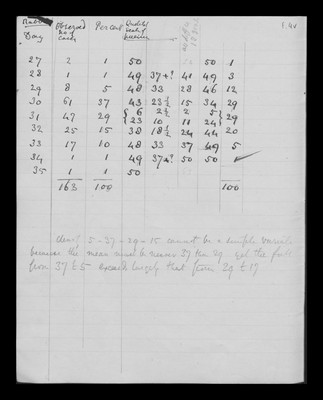 Day Observed No of Cases Per cent
27 2 1 50 50 1
28 1 1 49 37+? 41 49 3
29 8 5 48 33 28 46 12
30 61 37 43 23½ 15 34 29
31 47 29 { 6 2½ 2 5 } 29
23 10 11 24
32 25 15 38 18½ 24 44 20
33 17 10 48 33 37 49 5
34 1 1 49 37+? 50 50
35 1 1 50
163 100 100
5 - 37 - 29 - 15 cannot be a simple variable
because the mean must be nearer 37 than 29 yet the fall
from 37 to 5 exceeds largely that from 29 to 15